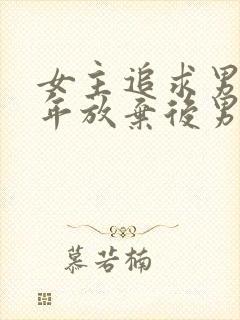 女主追求男
年放棄後男
慕若楠